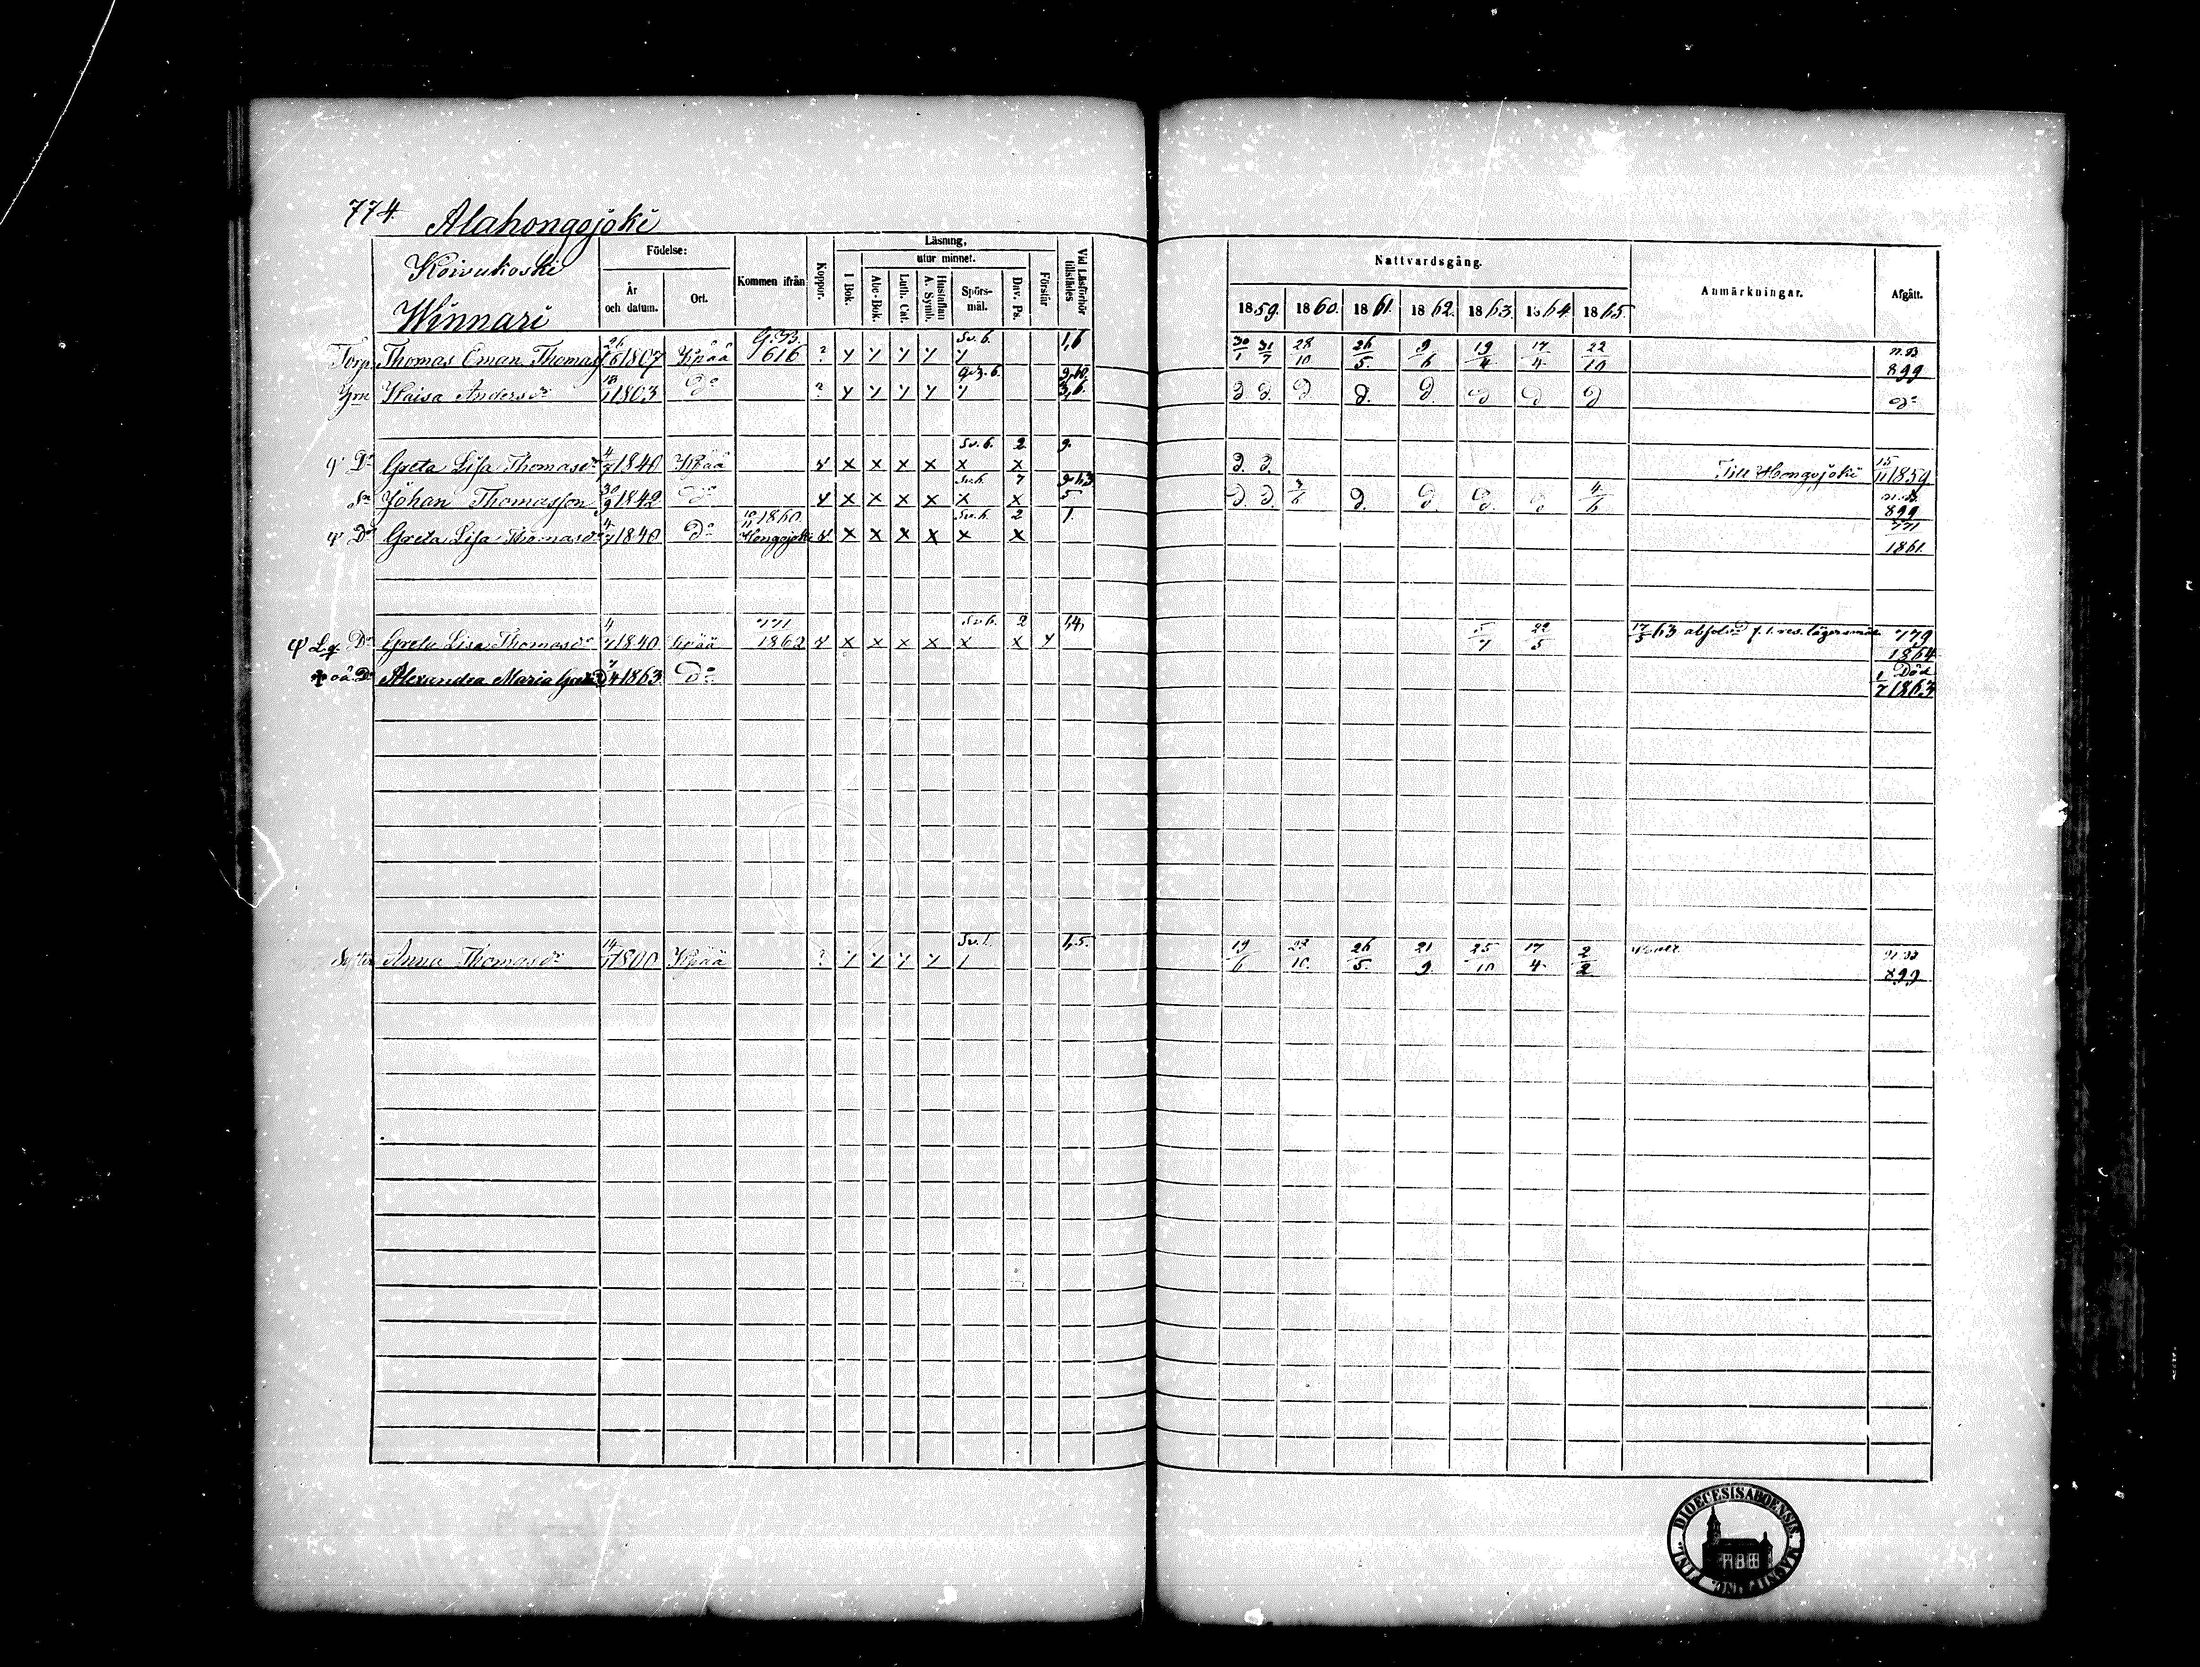 774. Alahongojoki
Koivukoski
Winnari
Födelse:
År och datum.
Ort.
Kommen ifrån
Koppor.
Läsning,
utur minnet.
I Bok.
Abc-Bok.
Luth. Cat.
Hustaflan A. Symb.
Spörs-mål.
Dav. Ps.
Förstår
Vid Läsförhör tillstädes
Nattvardsgång.
1859. 1860. 1861. 1862. 1863. 1864. 1865.
Anmärkningar.
Afgått.
Torp. Thomas Oman Thomass 26/6 1807 Kpää G.B. 616 ? Sv. b. 1,6 30/1 31/7 28/10 26/5. 9/6 19/4 17/4. 22/10 n.B 899
Hru Kaisa Andersdr 18/1 1803 Do ? D. D. D D. D. D D D Do
Dr Greta Lisa Thomasdr 4/7 1840 Kpää v x x x x Sv. b. x 2 x 9. D. D. Till Hongojoki 15/11 1859
Sn Johan Thomasson 30/9 1842 Do v x x x x Sv. b. x 7 x 5 D. D. 3/6 D. D. D. D 4/6 n.B 899
Dr Greta Lisa Thomasdr 4/7 1840 Do 10/11 1860 Hongojoki v x x x x Sv. b. x 2 x 1. 771 1861.
Dr Greta Lisa Thomasdr 4/7 1840 Kpää 771 1862 v x x x x Sv b. x 2 x 5/7 22/5 17/5 63 absolvd f. 1. res. lägersmål 779 1864
oä Dr Alexandra Maria 1863. Do Död 1/7 1863
Anna Thomasdr 14/7 1800 Kpää ? Sv. 1. 1,5. 19/6 28/10. 26/5. 21/9. 25/10 17/4. 2/2 n.B 899
DIOECESIS ABOENSIS. MAGNI DUC. FINL.